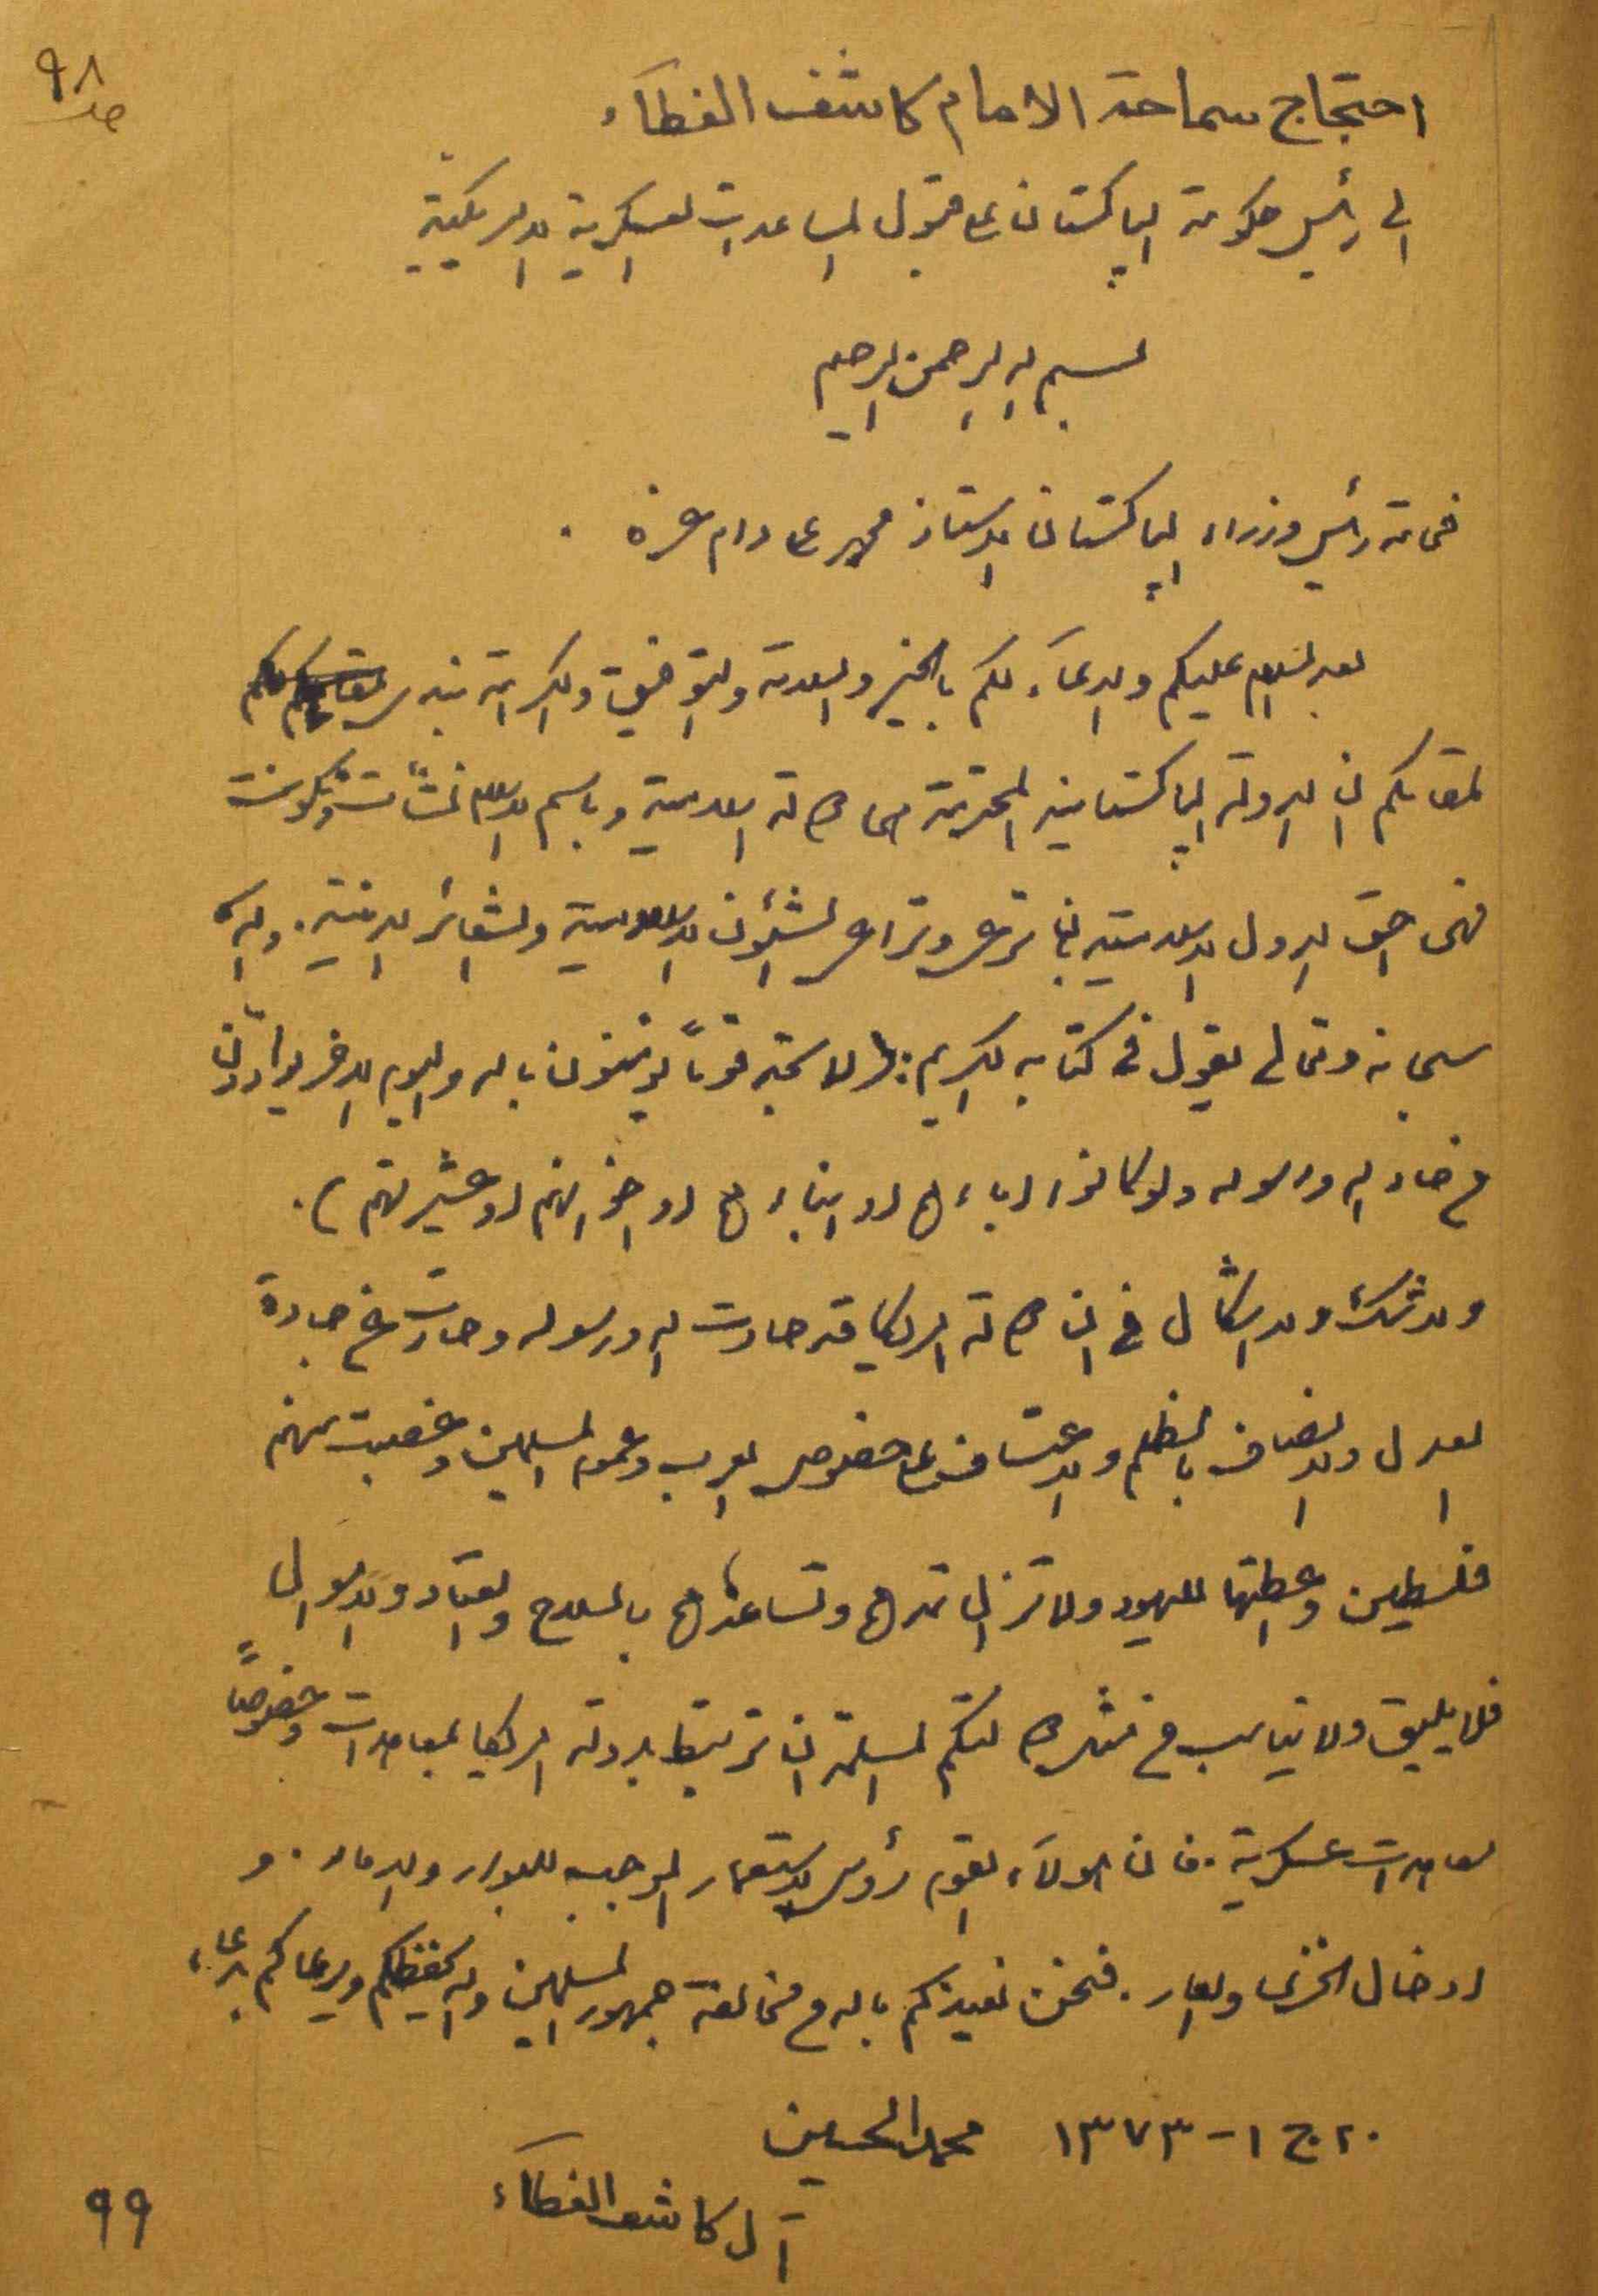 ٩٨
صد
احتجاج سماحة الامام كاشف الغطآء
الى رئيس حكومة الباكستان على قبول المساعدات العسكرية الامريكية
بسم الله الرحمن الرحيم
فخامة رئيس وزراء الباكستان الاستاذ محمد علي دام عزه .
بعد السلام عليكم والدعآء لكم بالخير والسلامة والتوفيق والكرامة نبدي
لمقامكم ان الدولة الباكستانية المحترمة هي دولة اسلامية وباسم الاسلام نشأت وتكونت
فهي احق الدول الاسلامية بان ترعى وتراعي الشئون الاسلامية والشعائر الدينية . والله
سبحانه وتعالى يقول في كتابه الكريم : ( لا تجد قوماً يؤمنون بالله واليوم الاخر يوادّون
من حاد الله ورسوله ولو كانوا اباءهم او ابناءهم او اخوانهم او عشيرتهم ) .
ولا شك ولا اشكال في ان دولة امريكا قد حادت الله ورسوله وحادت عن جادة
العدل والانصاف بالظلم والاعتساف على خصوص العرب وعموم المسلمين وغصبت منهم
فلسطين واعطتها لليهود ولا تزال تمدهم وتساعدهم بالسلاح والعتاد والاموال
فلا يليق ولا يناسب من مثل دولتكم المسلمة ان ترتبط بدولة امريكا بمعاهدات وخصوصاً
معاهدات عسكرية . فان هولآء القوم رؤس الاستعمار الموجب للبوار والدمار . و
ادخال الخزي والعار . فنحن نعيذكم بالله من مخالفة جمهور المسلمين والله يحفظكم ويرعاكم بدعاء
٢٠ ج ١ - ١٣٧٣ محمد الحسين
آل كاشف الغطآء
٩٩